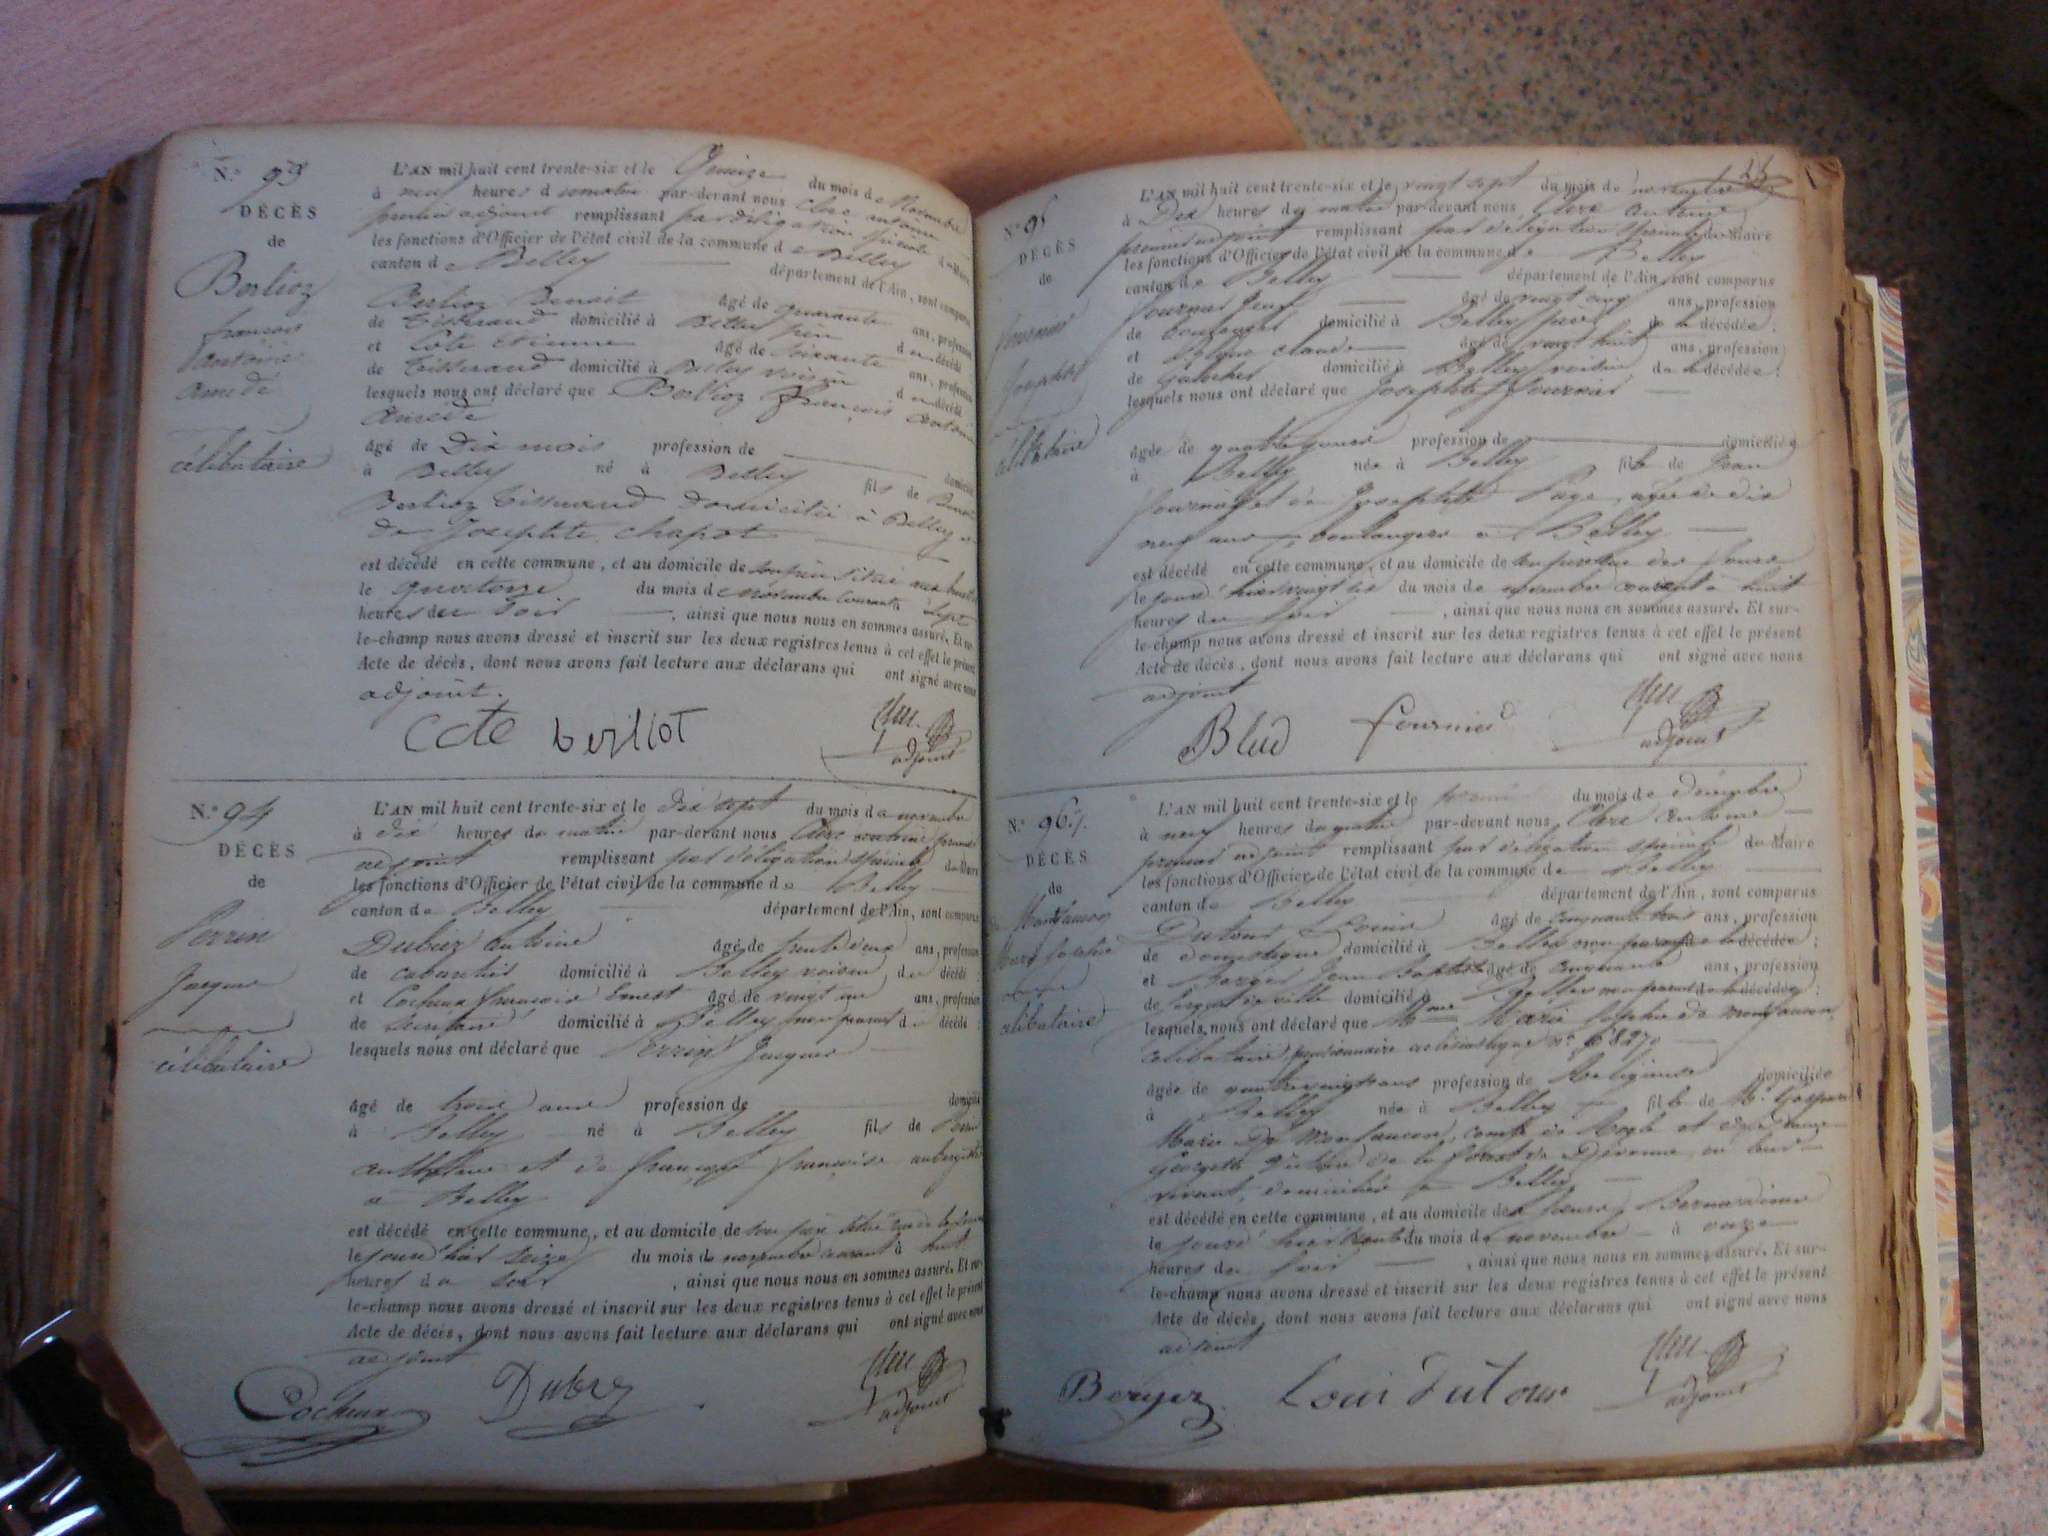 N.° 93
DÉCÈS
de
Berlioz
françois
antoine
amedé
célibataire
L'AN mil huit cent trente-six et le Quinze du mois de Novembre
à neuf heures d u matin par-devant nous Clerc antoine
premier adjoint remplissant par délégation spéciale d u Maire
les fonctions d'Officier de l'état civil de la commune d e Belley
canton d e Belley département de l'Ain, sont comparus
Berlioz Benoit âgé de quarante ans, profession
de Tisserand domicilié à Belley père d u décédé
et Cote etienne âgé de soixante ans, profession
de Tisserand domicilié à Belley voisin d u décédé
lesquels nous ont déclaré que Berlioz françois antoine
amedé
âgé de Dix mois profession de domicilié
à Belley né à Belley fils de Benoit
Berlioz Tisserand domicilié à Belley et
de Josephte chapot
est décédé en cette commune, et au domicile de son père situé
le quatorze du mois de novembre courant à sept
heures du soir , ainsi que nous nous en sommes assuré. Et sur-
le-champ nous avons dressé et inscrit sur les deux registres tenus à cet effet le présent
Acte de décès, dont nous avons fait lecture aux déclarans qui ont signé avec nous
adjoint.
Cote berlioT
Clerc
adjoint
N.° 94
DÉCÈS
de
Perrin
Jacques
célibataire
L'AN mil huit cent trente-six et le dix sept du mois de novembre
à dix heures du matin par-devant nous Clerc antoine premier
adjoint remplissant par délégation spéciale du Maire
les fonctions d'Officier de l'état civil de la commune d e Belley
canton de Belley département de l'Ain, sont comparus
antoine âgé de trente deux ans, profession
de cabaretier domicilié à Belley voisin du décédé
et Cocheux françois Ernest âgé de vingt un ans, profession
de Secretaire domicilié à Belley non parent du décédé ;
lesquels nous ont déclaré que Perrin Jacques
âgé de trois ans profession de domicilié
à Belley né à Belley fils de Perrin
anthelme et de françoise aubergiste
à Belley
est décédé en cette commune, et au domicile de son père situé
le jour d'hier seize du mois de novembre courant à huit
heures du soir , ainsi que nous nous en sommes assuré. Et sur-
le-champ nous avons dressé et inscrit sur les deux registres tenus à cet effet le présent
Acte de décès, dont nous avons fait lecture aux déclarans qui ont signé avec nous
adjoint
Cocheux
Clerc
adjoint
N.° 95
DÉCÈS
de
fournier
Josephte
célibataire
L'AN mil huit cent trente-six et le vingt sept du mois de novembre
à Dix heures du matin par-devant nous Clerc antoine
premier adjoint remplissant par délégation spéciale du Maire
les fonctions d'Officier de l'état civil de la commune de Belley
canton de Belley département de l'Ain, sont comparus
fournier Jean âgé de vingt cinq ans, profession
de boulanger domicilié à Belley père de la décédée,
et claude âgé de vingt huit ans, profession
de domicilié à Belley voisin de la décédée ;
lesquels nous ont déclaré que Josephte fournier
âgée de quatre jours profession de domiciliée
à Belley née à Belley fille de Jean
fournier et de Josephte Page, agée de dix
neuf ans, boulangers à Belley
est décédé en cette commune, et au domicile de son père
le jour d'hier vingt six du mois de novembre courant à huit
heures du soir , ainsi que nous nous en sommes assuré. Et sur-
le-champ nous avons dressé et inscrit sur les deux registres tenus à cet effet le présent
Acte de décès, dont nous avons fait lecture aux déclarans qui ont signé avec nous
adjoint
fournier
Clerc
adjoint
N.° 96
DÉCÈS
de
Montfaucon
Marie Sophie
célibataire
L'AN mil huit cent trente-six et le premier du mois de décembre
à neuf heures du matin par-devant nous Clerc antoine
premier adjoint remplissant par délégation spéciale du Maire
les fonctions d'Officier de l'état civil de la commune de Belley
canton de Belley département de l'Ain, sont comparus
Dutour Louis âgé de cinquante trois ans, profession
de domestique domicilié à Belley non parent de la décédée ;
et Berger Jean Baptiste âgé de cinquante ans, profession
de sergent de ville domicilié à Belley non parent de la décédée ;
lesquels nous ont déclaré que Mme Marie Sophie de montfaucon,
célibataire pensionnaire eclésiastique n.°
âgée de quatrevingt ans profession de Religieuse domiciliée
à Belley née à Belley fille de Mr
Marie De Montfaucon, comte de et de dame
de la forest de Divonne, en leur
vivant, domiciliés à Belley
est décédé en cette commune, et au domicile des Soeurs Bernardines
le jour d'hier trente du mois de novembre à onze
heures du soir , ainsi que nous nous en sommes assuré. Et sur-
le-champ nous avons dressé et inscrit sur les deux registres tenus à cet effet le présent
Acte de décès, dont nous avons fait lecture aux déclarans qui ont signé avec nous
adjoint
Berger Loui duTour
Clerc
adjoint